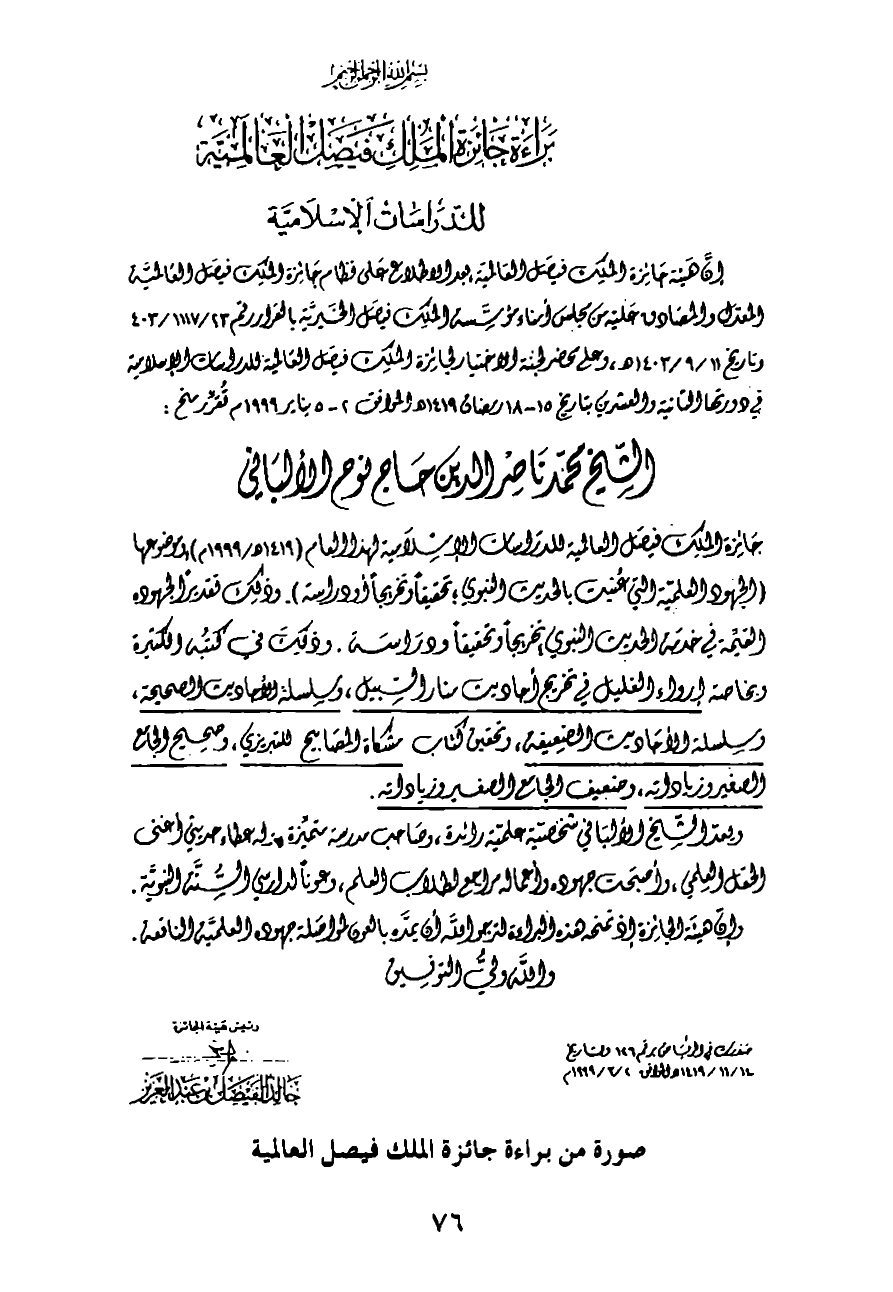 بسم الله الرحمن الرحيم
بَرَاءَة جَائِزَة المَلِك فَيصَل العَالَمِيَّة
للدِّرَاسَات الإِسْلَامِيَّة
إنَّ هَيئة جَائزة الملك فيصَل العَالميّة، بعد الاطلاع عَلى نظام جَائزة الملك فيصَل العَالميَّة
المعدّل والمصَادق عَليه من مجلس أمناء مؤسَّسة الملك فيصَل الخيريَّة بالقرار رقم ٤٠٣/١١١٧/٢٣
وتاريخ ١٤٠٣/٩/١١هـ، وعلى محضر لجنة الاختيار لجائزة الملك فيصَل العَالمية للدراسَات الإسلامية
في دورتها الثانية والعشرين بتاريخ ١٥-١٨ رمضان ١٤١٩هـ الموافق ٢-٥ يناير ١٩٩٩م تُقَرِّر منح :
الشَّيخ محمّد نَاصِر الدين حَاج نوح الألبَاني
جَائزة الملك فيصَل العَالمية للدرَاسَات الإسْلَامية لهذا العَام (١٤١٩هـ/١٩٩٩م)، وموضوعها
(الجهود العلميّة التي عُنيت بالحديث النبوي؛ تحقيقاً وتخريجاً أو دراسة). وذلك تقديراً لجهوده
القيّمة في خدمَة الحديث النبوي، تخريجاً وتحقيقاً ودرَاسَة. وذلك في كتبُه الكثيرة
وبخاصة إرواء الغليل في تخريج أحاديث منار السَّبيل، وسلسلة الأحاديث الصحيحة،
وسلسلة الأحَاديث الضعيفة، وتحقيق كتاب مشكاة المصَابيح للتبريزي، وصَحيح الجَامع
الصغير وزياداته، وضعيف الجامع الصغير وزياداته.
ويعدّ الشَّيخ الألبَاني شخصيّة علميّة رائدة، وصَاحب مدرسة متميِّزة، له عطاء حديثي أغنى
الحقل العِلمي، وأصبحت جهوده وأعماله مراجع لطلاب العلم، وعوناً لدارسي السُّنَّة النبويَّة.
وإنّ هيئة الجَائزة إذ تمنحه هذه البراءة لترجو الله أن يمدَّه بالعون لمواصَلة جهوده العلميَّة النافعة.
والله وليُّ التوفيق
ورئيس هَيئة الجَائزة
صَدرت في الريَاض برقم ١٢٦ وبتاريخ
١٤١٩/١١/١٤هـ الموافق ١٩٩٩/٣/٢م
خَالد الفَيصَل بن عَبد العَزيز
صورة من براءة جائزة الملك فيصل العالمية
٧٦